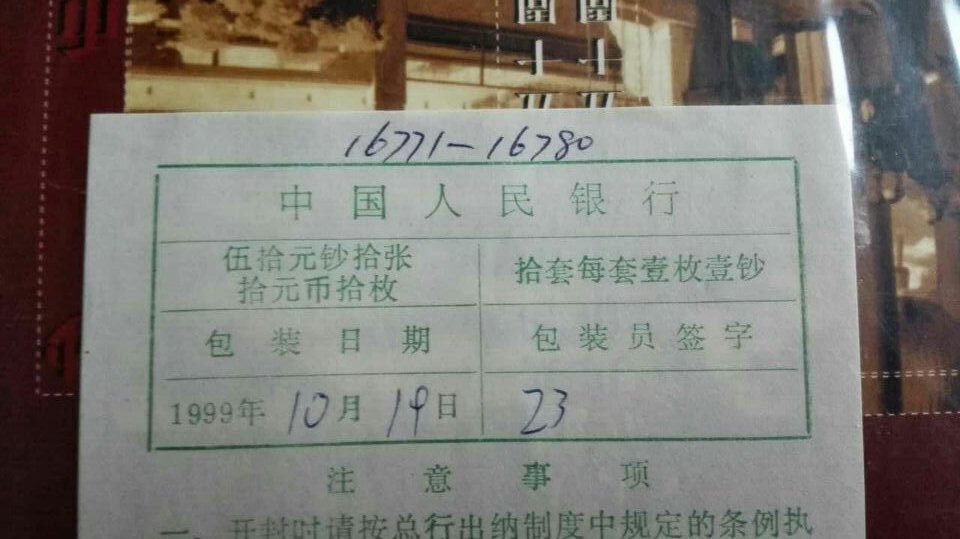 16771-16780
中国人民银行
伍拾元钞拾张
拾元币拾枚
拾套每套壹枚壹钞
包装日期
包装员签字
1999年 10月 19日
23
注意事项
一、开封时请按总行出纳制度中规定的条例执